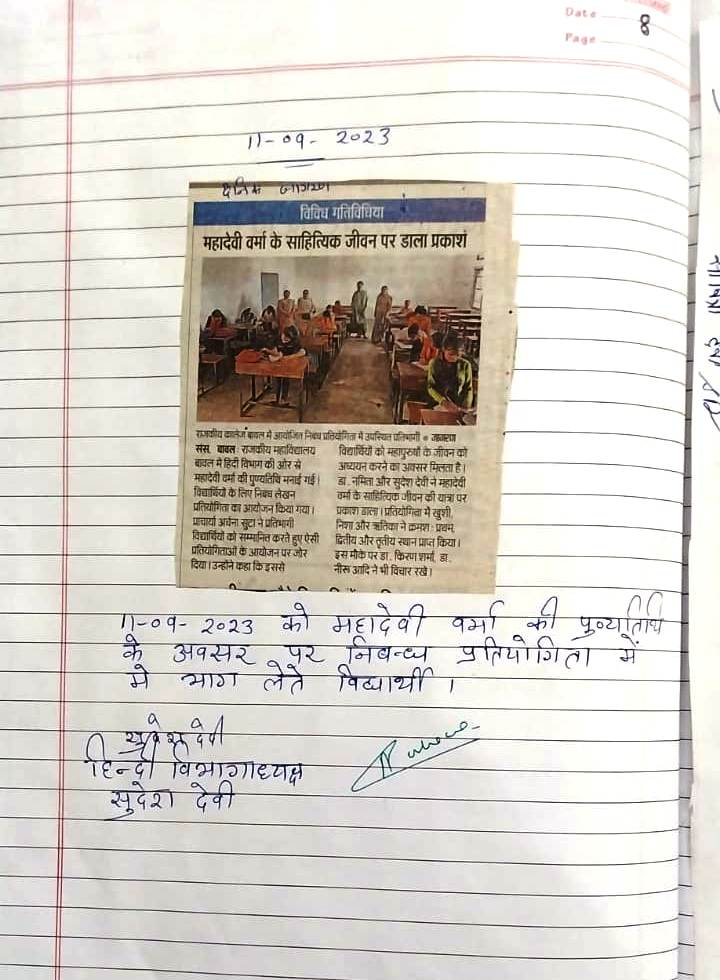 Date 8
Page
11-09-2023
दैनिक जागरण
विविध गतिविधिया
महादेवी वर्मा के साहित्यिक जीवन पर डाला प्रकाश
राजकीय कालेज बावल में आयोजित निबंध प्रतियोगिता में उपस्थित प्रतिभागी ● जागरण
संस, बावल: राजकीय महाविद्यालय
बावल में हिंदी विभाग की ओर से
महादेवी वर्मा की पुण्यतिथि मनाई गई।
विद्यार्थियों के लिए निबंध लेखन
प्रतियोगिता का आयोजन किया गया।
प्राचार्या अर्चना सुटा ने प्रतिभागी
विद्यार्थियों को सम्मानित करते हुए ऐसी
प्रतियोगिताओं के आयोजन पर जोर
दिया। उन्होंने कहा कि इससे
विद्यार्थियों को महापुरुषों के जीवन को
अध्ययन करने का अवसर मिलता है।
डा. नमिता और सुदेश देवी ने महादेवी
वर्मा के साहित्यिक जीवन की यात्रा पर
प्रकाश डाला। प्रतियोगिता में खुशी,
निशा और ऋतिका ने क्रमश: प्रथम,
द्वितीय और तृतीय स्थान प्राप्त किया।
इस मौके पर डा. किरण शर्मा, डा.
नीरू आदि ने भी विचार रखे।
11-09-2023 को महादेवी वर्मा की पुण्यतिथि
के अवसर पर निबन्ध प्रतियोगिता में
मे भाग लेते विद्यार्थी।
सुदेश देवी
हिन्दी विभागाध्यक्ष
सुदेश देवी